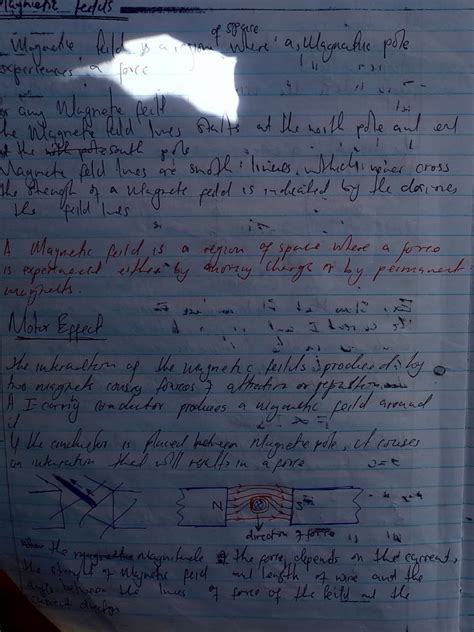 Magnetic feilds
of space
Magnetic feild is a region where a Magnetic pole
experiences a force
any Magnetic feild
The Magnetic feild lines starts at the north pole and end
at the south pole
Magnetic feild lines are smoth lines, which never cross
the strength of a Magnetic feild is indicated by the
the feild lines
A Magnetic feild is a region of space where a force
is experienced either by moving charge or by permanent
magnets.
Motor Effect
The interaction of the magnetic feilds produced by
two magnets causes forces of attraction or repulsion
A I-carring conductor produces a magnetic feild around
it
If the conductor is placed between Magnetic pole, it causes
an interation that will results in a force
N S
direction of force
the magnitude of the force, depends on the current,
the strength of Magnetic feild and length of wire and the
angle between the lines of force of the feild and the
current direction